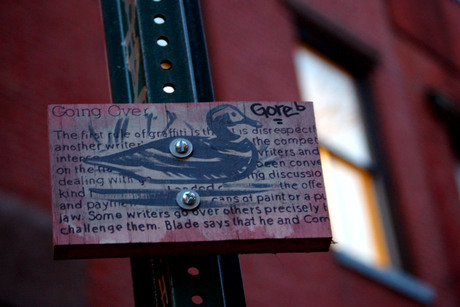 Going Over Goreb
The first rule of graffiti is th is disrespectf
another write the compet
inter writers and
on the been conve
dealing with g discussio
kind handed the offe
and paym cans of paint or a pu
jaw. Some writers go over others precisely t
challenge them. Blade says that he and Com